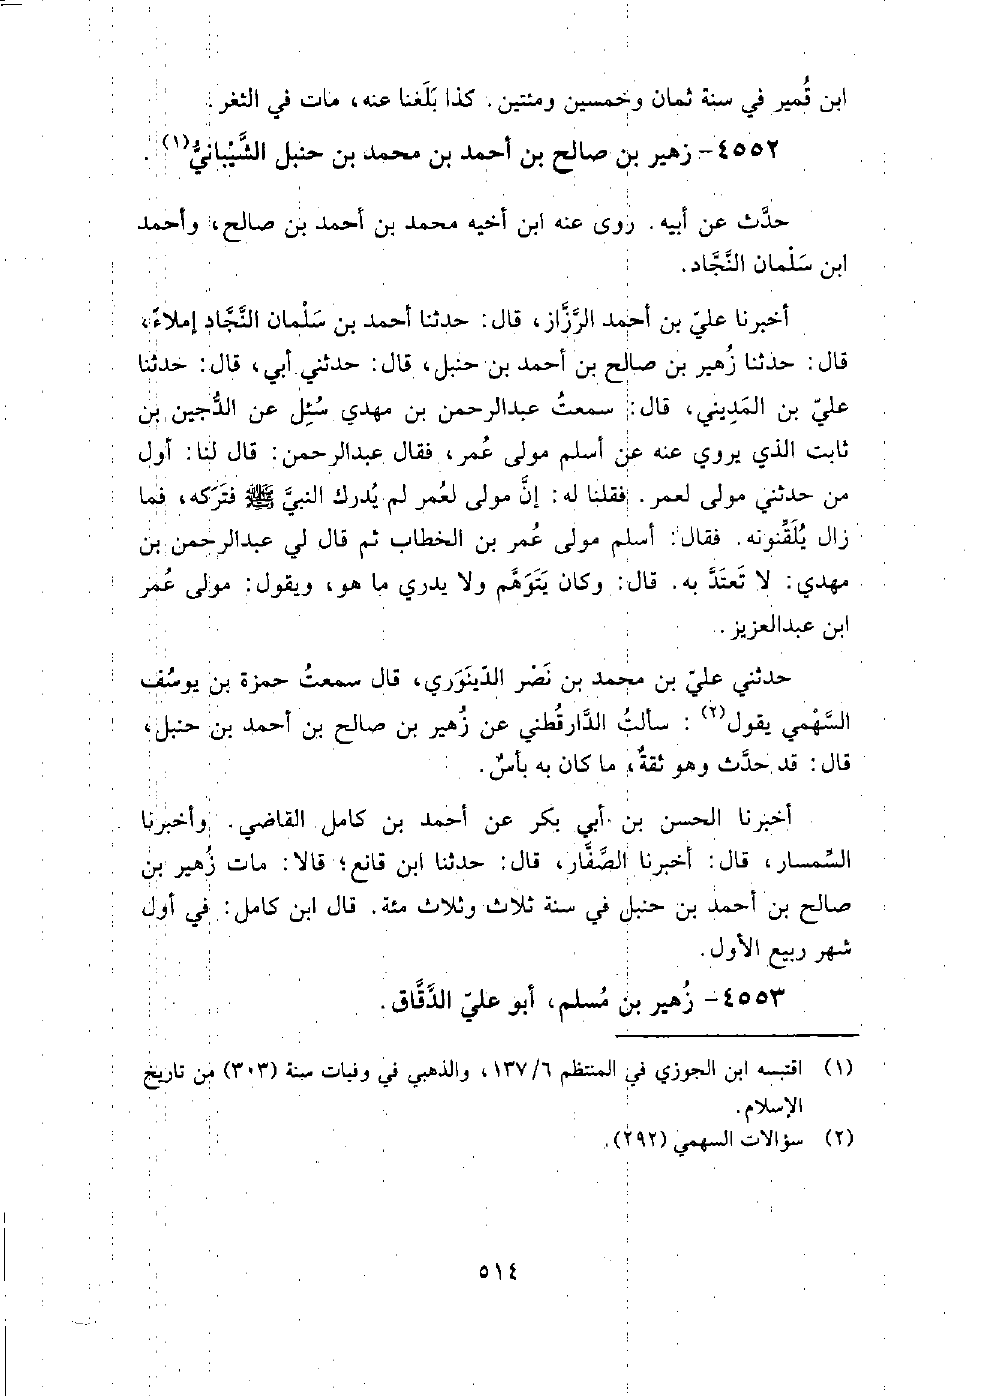 ابن قُمير في سنة ثمان وخمسين ومئتين. كذا بَلَغنا عنه، مات في الثغر.
٤٥٥٢- زهير بن صالح بن أحمد بن محمد بن حنبل الشَّيْبانيُّ(١).
حدَّث عن أبيه. روى عنه ابن أخيه محمد بن أحمد بن صالح، وأحمد
ابن سَلْمان النَّجَّاد.
أخبرنا عليّ بن أحمد الرَّزَّاز، قال: حدثنا أحمد بن سَلْمان النَّجَّاد إملاءً،
قال: حدثنا زُهير بن صالح بن أحمد بن حنبل، قال: حدثني أبي، قال: حدثنا
عليّ بن المَدِيني، قال: سمعتُ عبدالرحمن بن مهدي سُئِل عن الدُّجين بن
ثابت الذي يروي عنه عن أسلم مولى عُمر، فقال عبدالرحمن: قال لنا: أول
من حدثني مولى لعمر. فقلنا له: إنَّ مولى لعُمر لم يُدرك النبيَّ ﷺ فتَرَكه، فما
زال يُلَقِّنونه. فقال: أسلم مولى عُمر بن الخطاب ثم قال لي عبدالرحمن بن
مهدي: لا تَعتَدَّ به. قال: وكان يَتَوَهَّم ولا يدري ما هو، ويقول: مولى عُمر
ابن عبدالعزيز.
حدثني عليّ بن محمد بن نَصْر الدِّينَوَري، قال سمعتُ حمزة بن يوسُف
السَّهْمي يقول(٢): سألتُ الدَّارقُطني عن زُهير بن صالح بن أحمد بن حنبل،
قال: قد حدَّث وهو ثقةٌ، ما كان به بأسٌ.
أخبرنا الحسن بن أبي بكر عن أحمد بن كامل القاضي. وأخبرنا
السِّمسار، قال: أخبرنا الصَّفَّار، قال: حدثنا ابن قانع؛ قالا: مات زُهير بن
صالح بن أحمد بن حنبل في سنة ثلاث وثلاث مئة. قال ابن كامل: في أول
شهر ربيع الأول.
٤٥٥٣- زُهير بن مُسلم، أبو عليّ الدَّقَّاق.
(١) اقتبسه ابن الجوزي في المنتظم ٦/ ١٣٧، والذهبي في وفيات سنة (٣٠٣) من تاريخ
الإسلام.
(٢) سؤالات السهمي (٢٩٢).
٥١٤